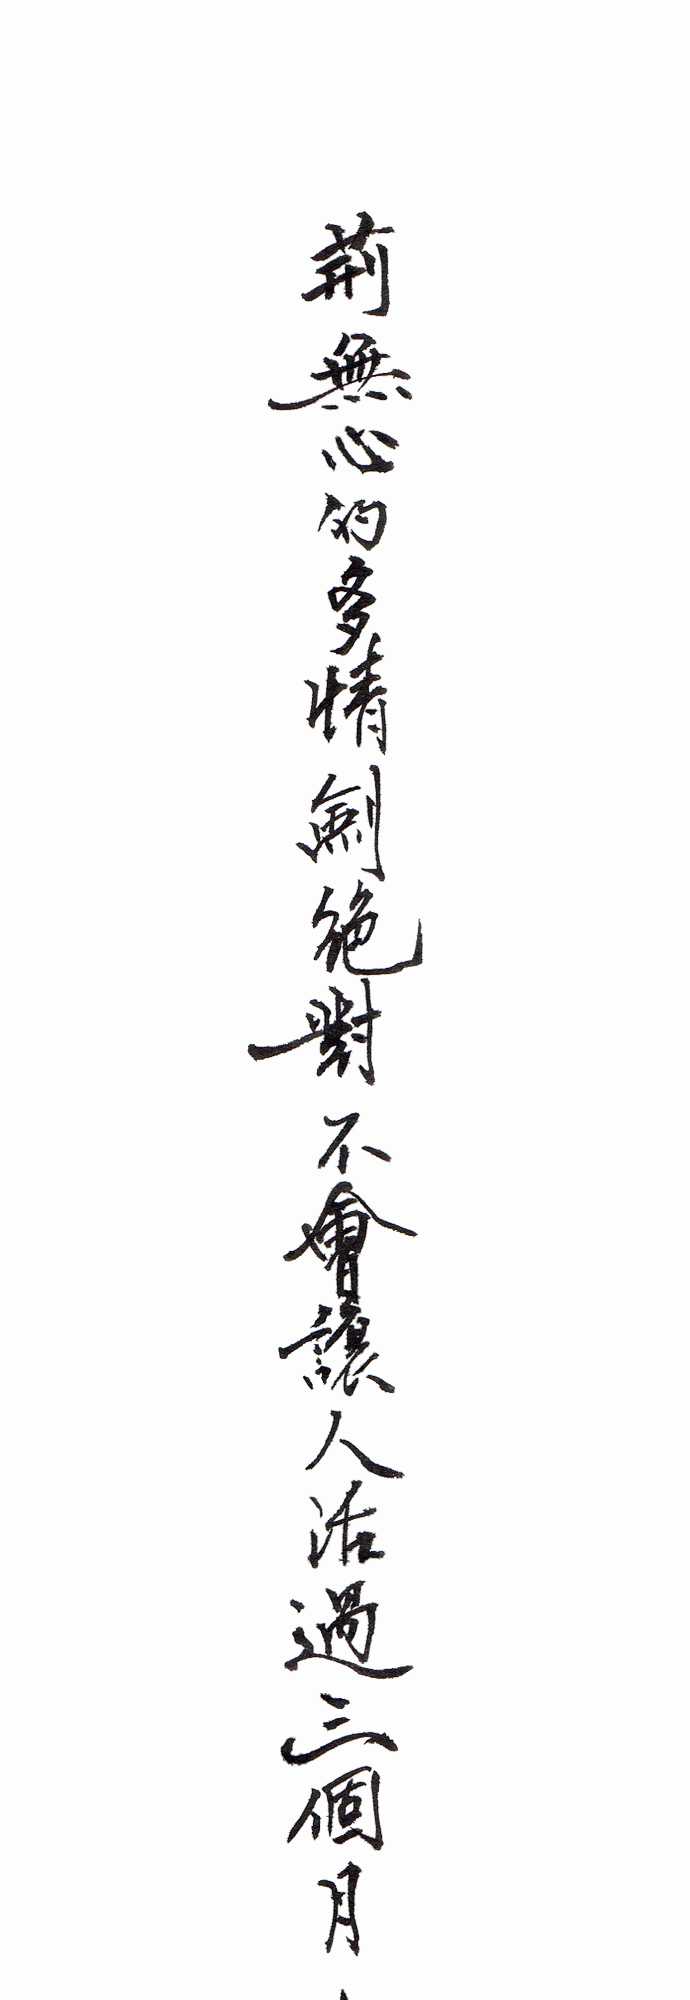 荊無心的多情劍絕對不會讓人活過三個月